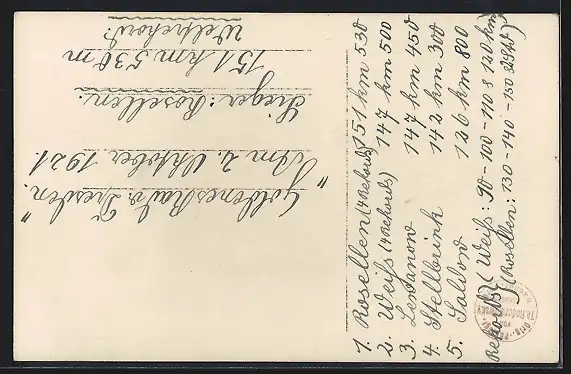 "Goldenes Rad v. Dresden."
Am 2. Oktober 1921.
Sieger: Rosellen.
151 km 530 m
Weltrekord.
1. Rosellen (4 Rekords) 151 km 530
2. Weiss (4 Rekords) 147 km 500
3. Lewanow 147 km 450
4. Stellbrink 142 km 300
5. Saldow 126 km 800
Rekords: (Weiß: 90-100-110 & 120 km)
(Rosellen: 130-140-150
Orig.-Photo
von